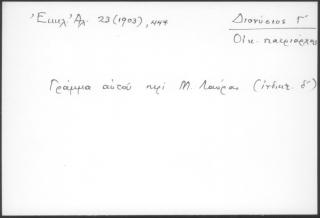 Ἐκκλ. Ἀλ. 23 (1903), 444
Διονύσιος Γ´
Οἰκ. πατριάρχης
Γράμμα αὐτοῦ περὶ Μ. Λαύρας (ἰνδικτ. δ´)